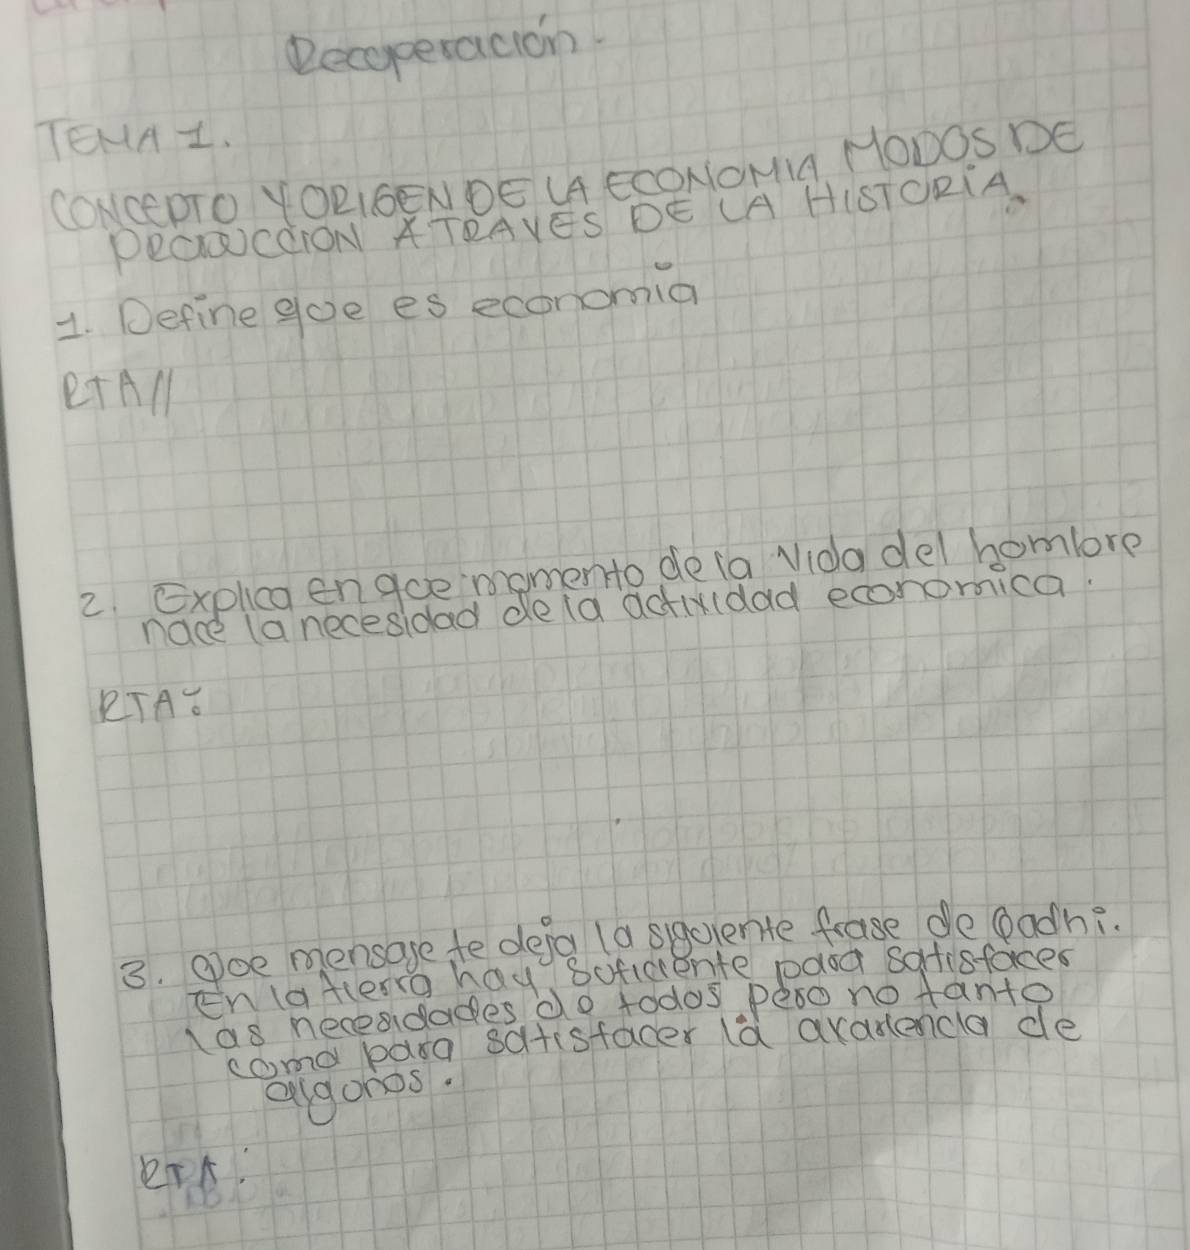 Recuperación.
TEMA 1.
CONCEPTO Y ORIGEN DE LA ECONOMIA MODOS DE
PRODUCCION A TRAVES DE LA HISTORIA.
1. Define que es economia
RTA//
2. Explica en que momento de la vida del hombre
nace la necesidad de la actividad economica.
RTA:
3. Que mensage te deja la siguiente frase de Gadhi.
En la tierra hay suficiente para satisfacer
las necesidades de todos pero no tanto
como para satisfacer la avariencia de
algunos.
RTA: